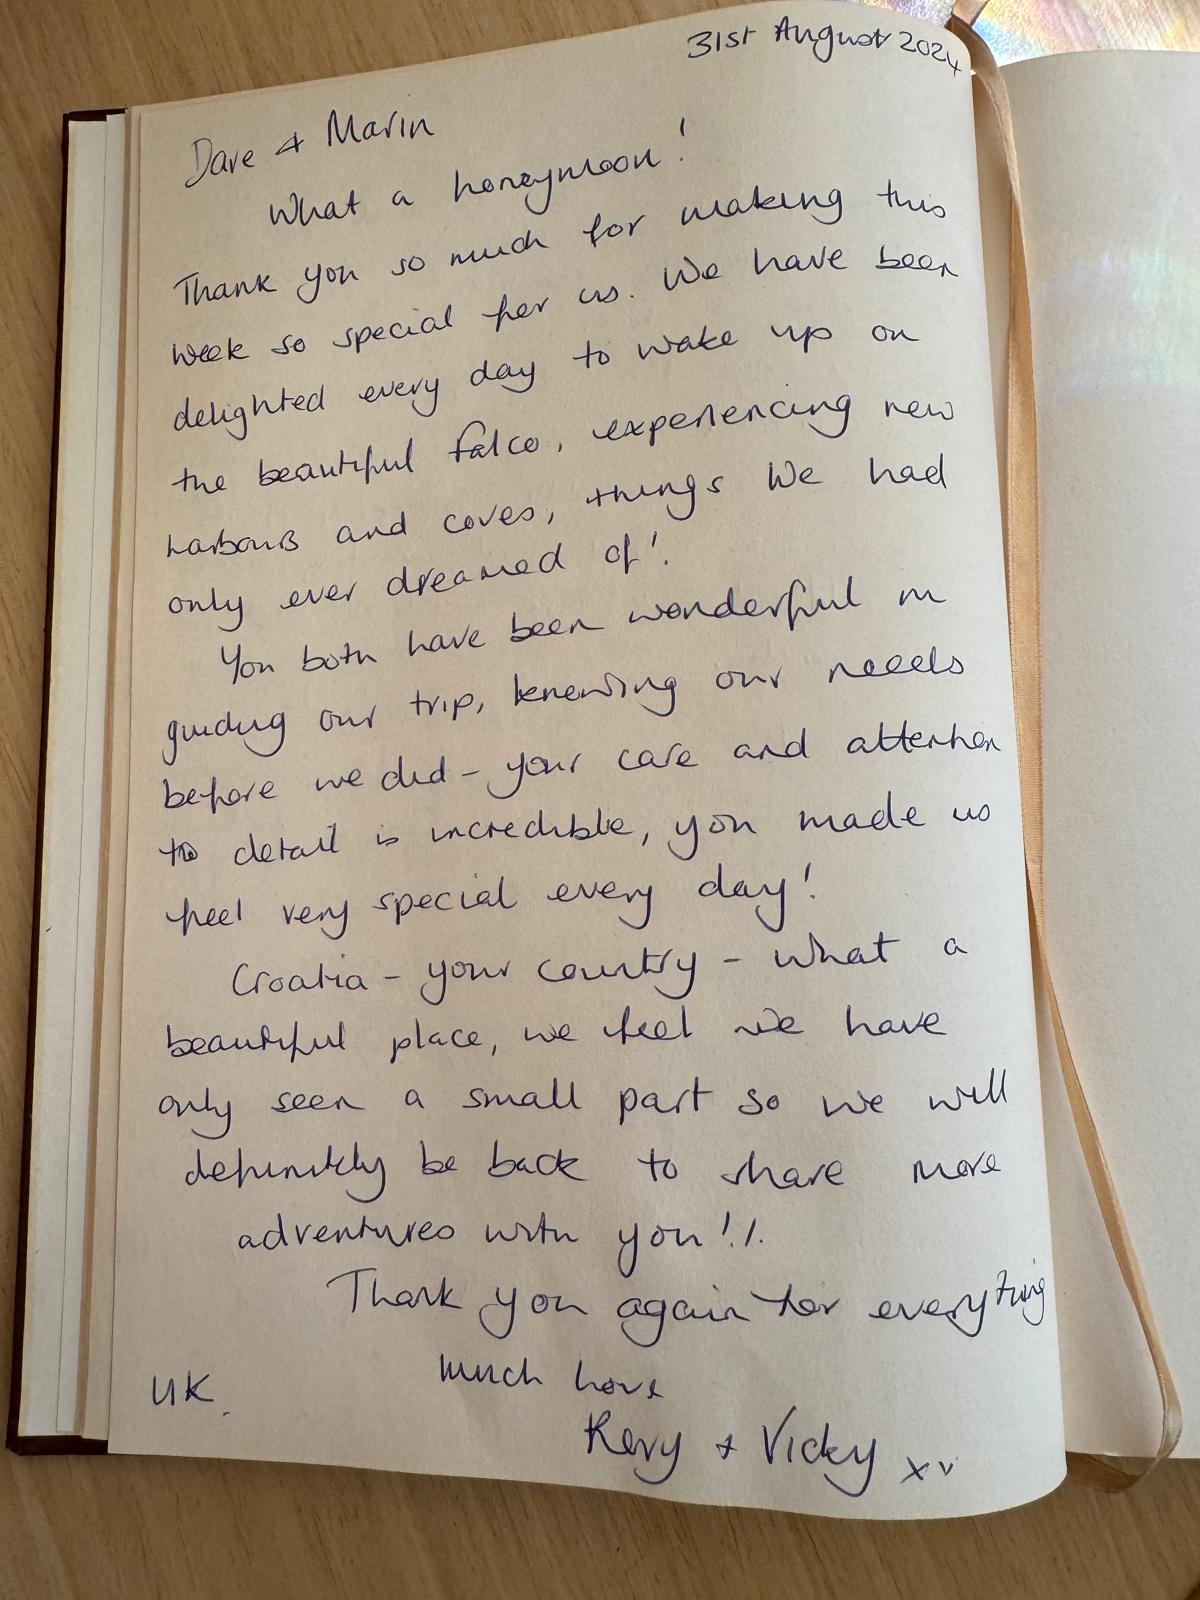 31st August 2024
Dave & Marin
What a honeymoon!
Thank you so much for making this
week so special for us. We have been
delighted every day to wake up on
the beautiful Falco, experiencing new
harbours and coves, things we had
only ever dreamed of!
You both have been wonderful in
guiding our trip, knowing our needs
before we did - your care and attention
to detail is incredible, you made us
feel very special every day!
Croatia - your country - what a
beautiful place, we feel we have
only seen a small part so we will
definitely be back to share more
adventures with you!!.
Thank you again for everything
much love
UK.
& Vicky xx